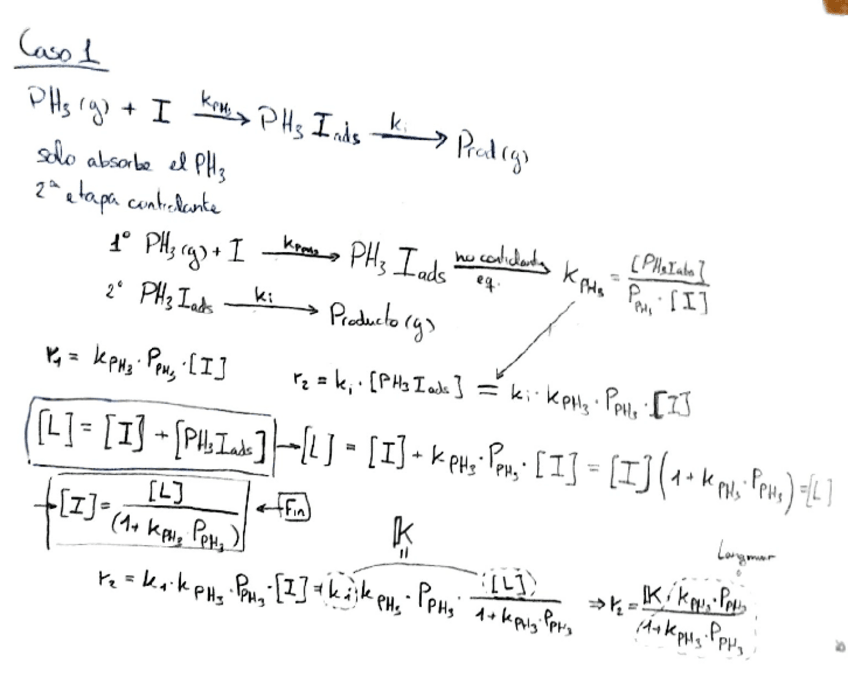 Caso 1
PH₃(g) + I —k_PH₃→ PH₃ I_ads —k_i→ Prod(g)
solo absorbe el PH₃
2ª etapa controlante
1º PH₃(g) + I —k_PH₃→ PH₃ I_ads —no controlante eq.→ k_PH₃ = [PH₃I_ads] / P_PH₃ · [I]
2º PH₃ I_ads —k_i→ Producto(g)
r₁ = k_PH₃ · P_PH₃ · [I]
r₂ = k_i · [PH₃ I_ads] = k_i · k_PH₃ · P_PH₃ · [I]
[L] = [I] + [PH₃ I_ads] → [L] = [I] + k_PH₃ · P_PH₃ · [I] = [I] (1 + k_PH₃ · P_PH₃) = [L]
→ [I] = [L] / (1 + k_PH₃ · P_PH₃) ← Fin
𝕂
=
Langmuir
r₂ = k₁ · k_PH₃ · P_PH₃ · [I] = k_i · k_PH₃ · P_PH₃ · [L] / 1 + k_PH₃ · P_PH₃ ⇒ r₂ = 𝕂 · k_PH₃ · P_PH₃ / (1 + k_PH₃ · P_PH₃